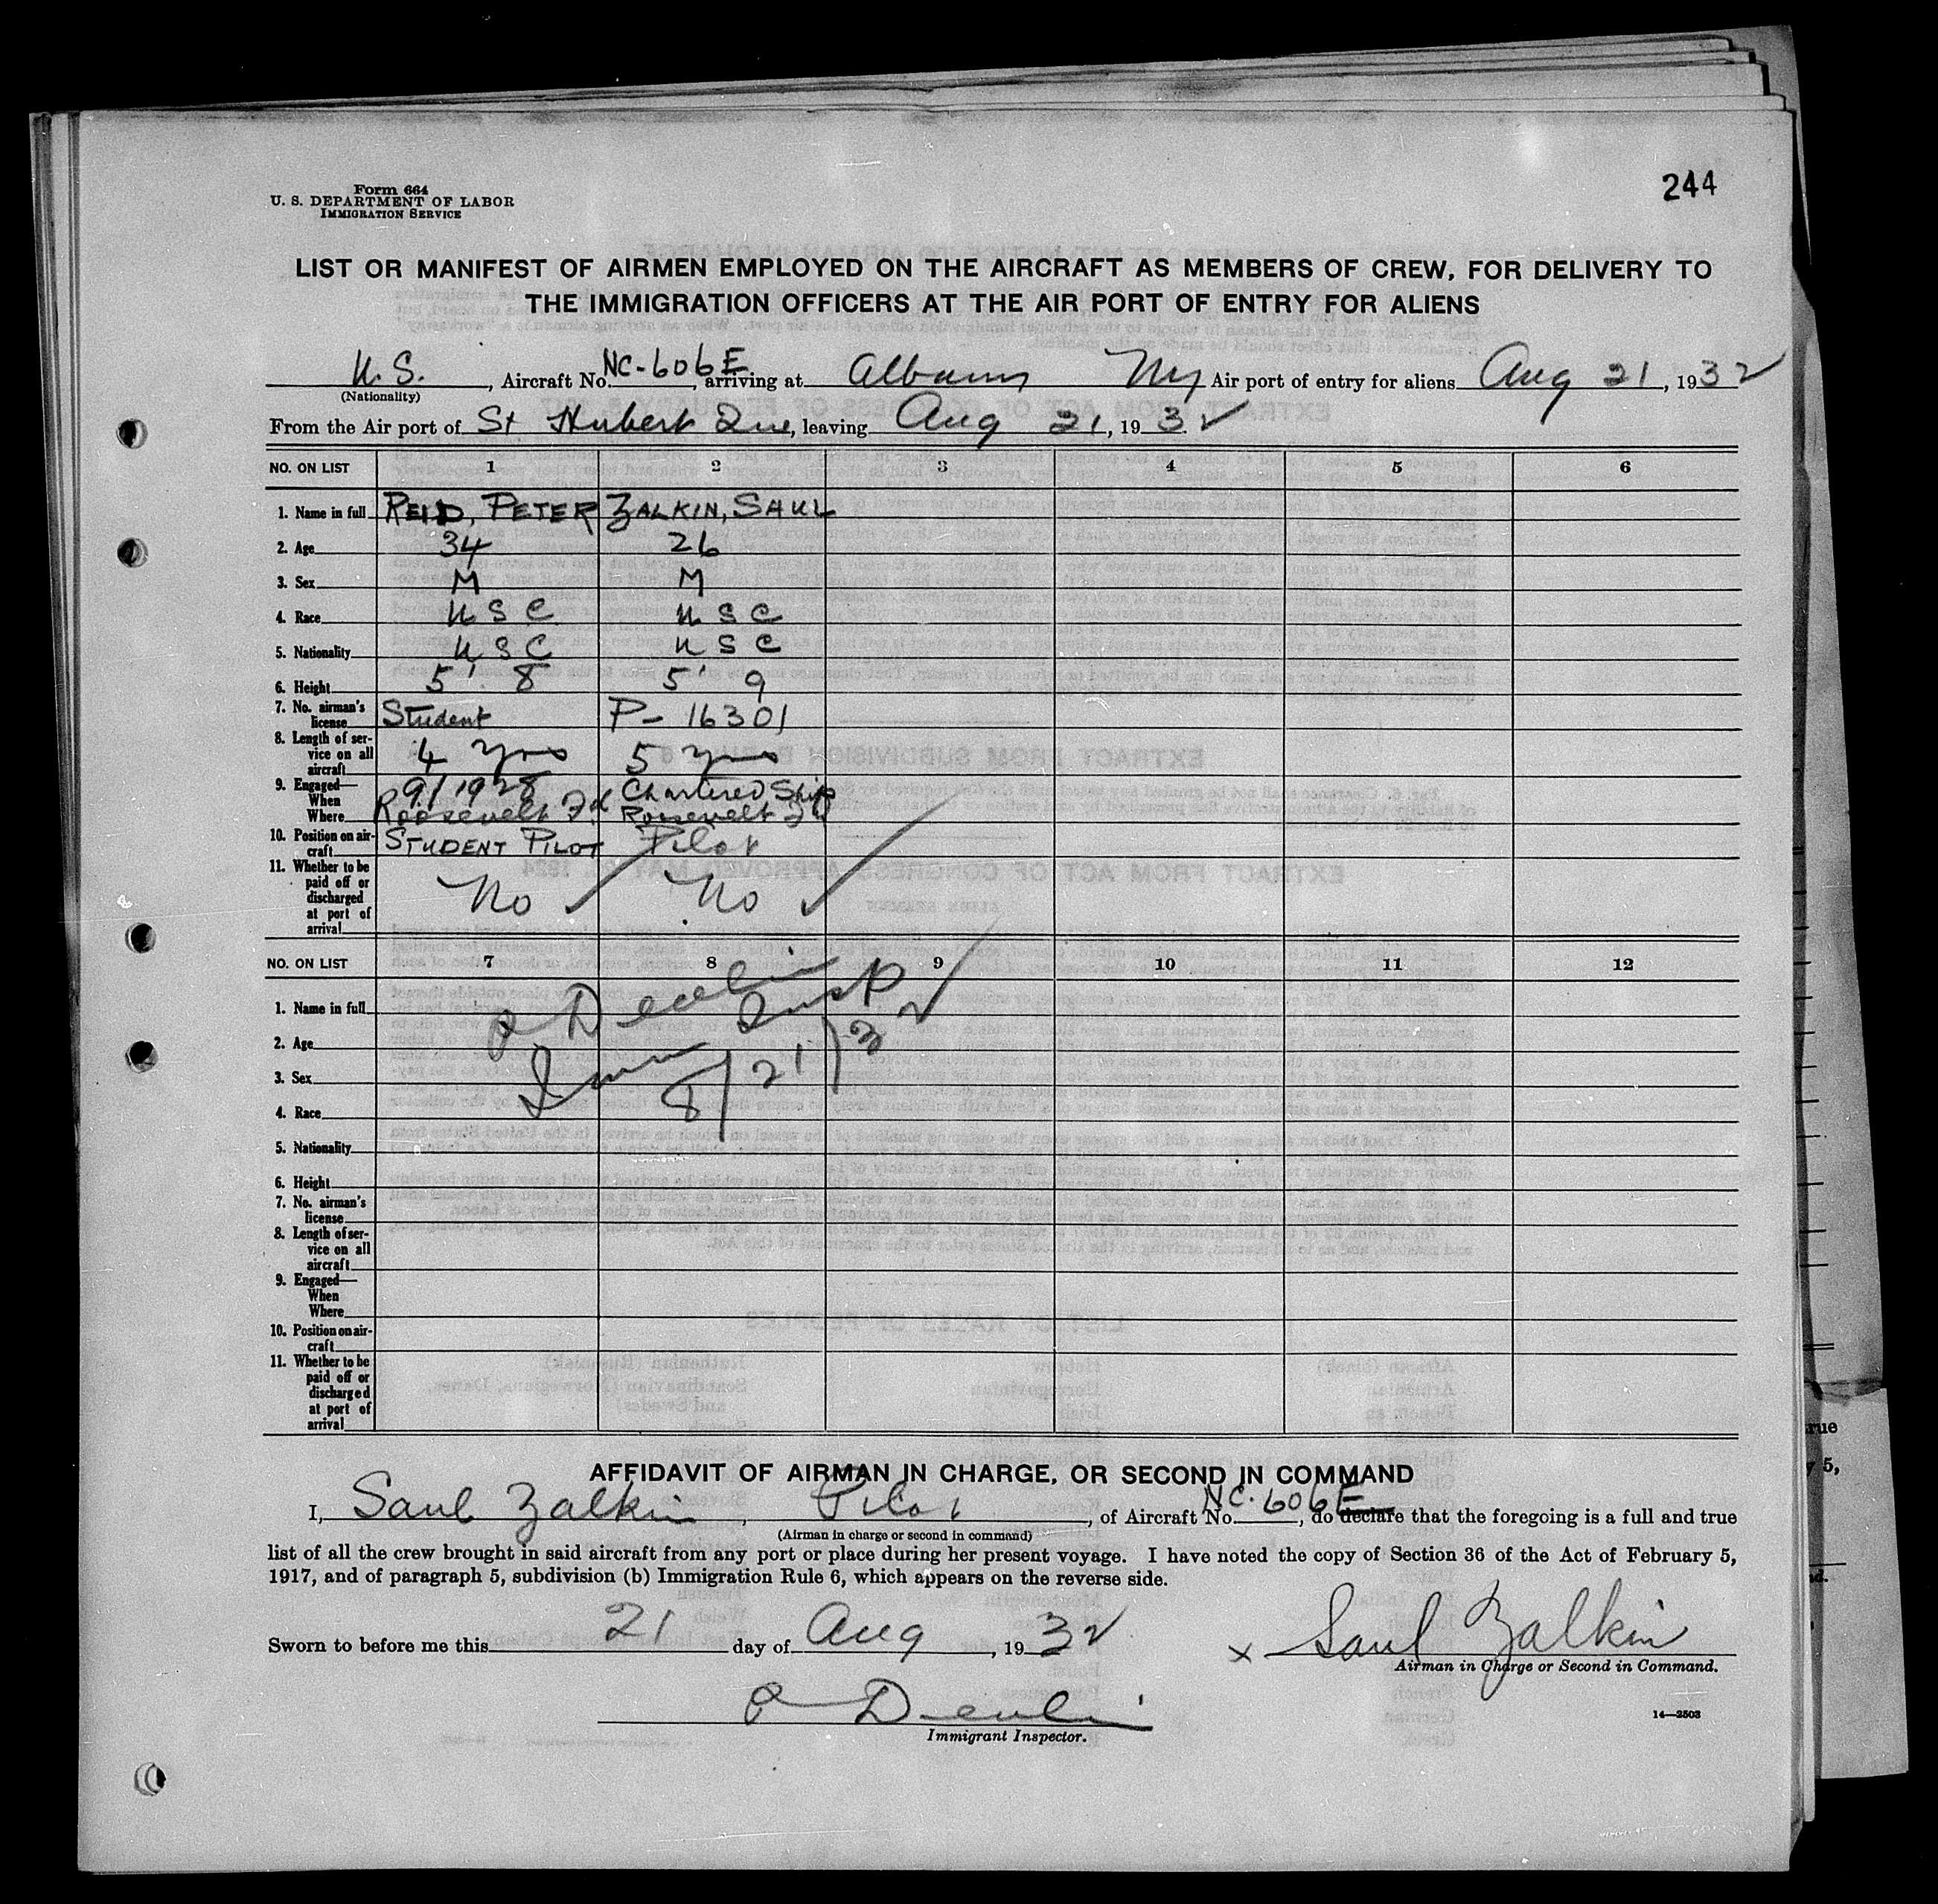 244
Form 664
U. S. DEPARTMENT OF LABOR
IMMIGRATION SERVICE
LIST OR MANIFEST OF AIRMEN EMPLOYED ON THE AIRCRAFT AS MEMBERS OF CREW, FOR DELIVERY TO
THE IMMIGRATION OFFICERS AT THE AIR PORT OF ENTRY FOR ALIENS
U.S., Aircraft No. NC-606E, arriving at Albany Ny Air port of entry for aliens Aug 21, 1932
(Nationality)
From the Air port of St Hubert Que, leaving Aug 21, 1932
NO. ON LIST 1 2 3 4 5 6
1. Name in full REID, PETER ZALKIN, SAUL
2. Age 34 26
3. Sex M M
4. Race U S C U S C
5. Nationality U S C U S C
6. Height 5' 8 5' 9
7. No. airman's
license Student P-16301
8. Length of ser-
vice on all
aircraft 4 yrs 5 yrs
9. Engaged—
When 9/1928 Chartered Ship
Where Roosevelt Fd Roosevelt Fd
10. Position on air-
craft STUDENT PILOT Pilot
11. Whether to be
paid off or
discharged
at port of
arrival No No
NO. ON LIST 7 8 9 10 11 12
1. Name in full
2. Age
3. Sex
4. Race
P Devlin
Imm Insp
8/21/32
5. Nationality
6. Height
7. No. airman's
license
8. Length of ser-
vice on all
aircraft
9. Engaged—
When
Where
10. Position on air-
craft
11. Whether to be
paid off or
discharged
at port of
arrival
AFFIDAVIT OF AIRMAN IN CHARGE, OR SECOND IN COMMAND
I, Saul Zalkin, Pilot, of Aircraft No. NC-606E, do declare that the foregoing is a full and true
(Airman in charge or second in command)
list of all the crew brought in said aircraft from any port or place during her present voyage. I have noted the copy of Section 36 of the Act of February 5,
1917, and of paragraph 5, subdivision (b) Immigration Rule 6, which appears on the reverse side.
Sworn to before me this 21 day of Aug, 1932
x Saul Zalkin
Airman in Charge or Second in Command.
P Devlin
Immigrant Inspector.
14—2503